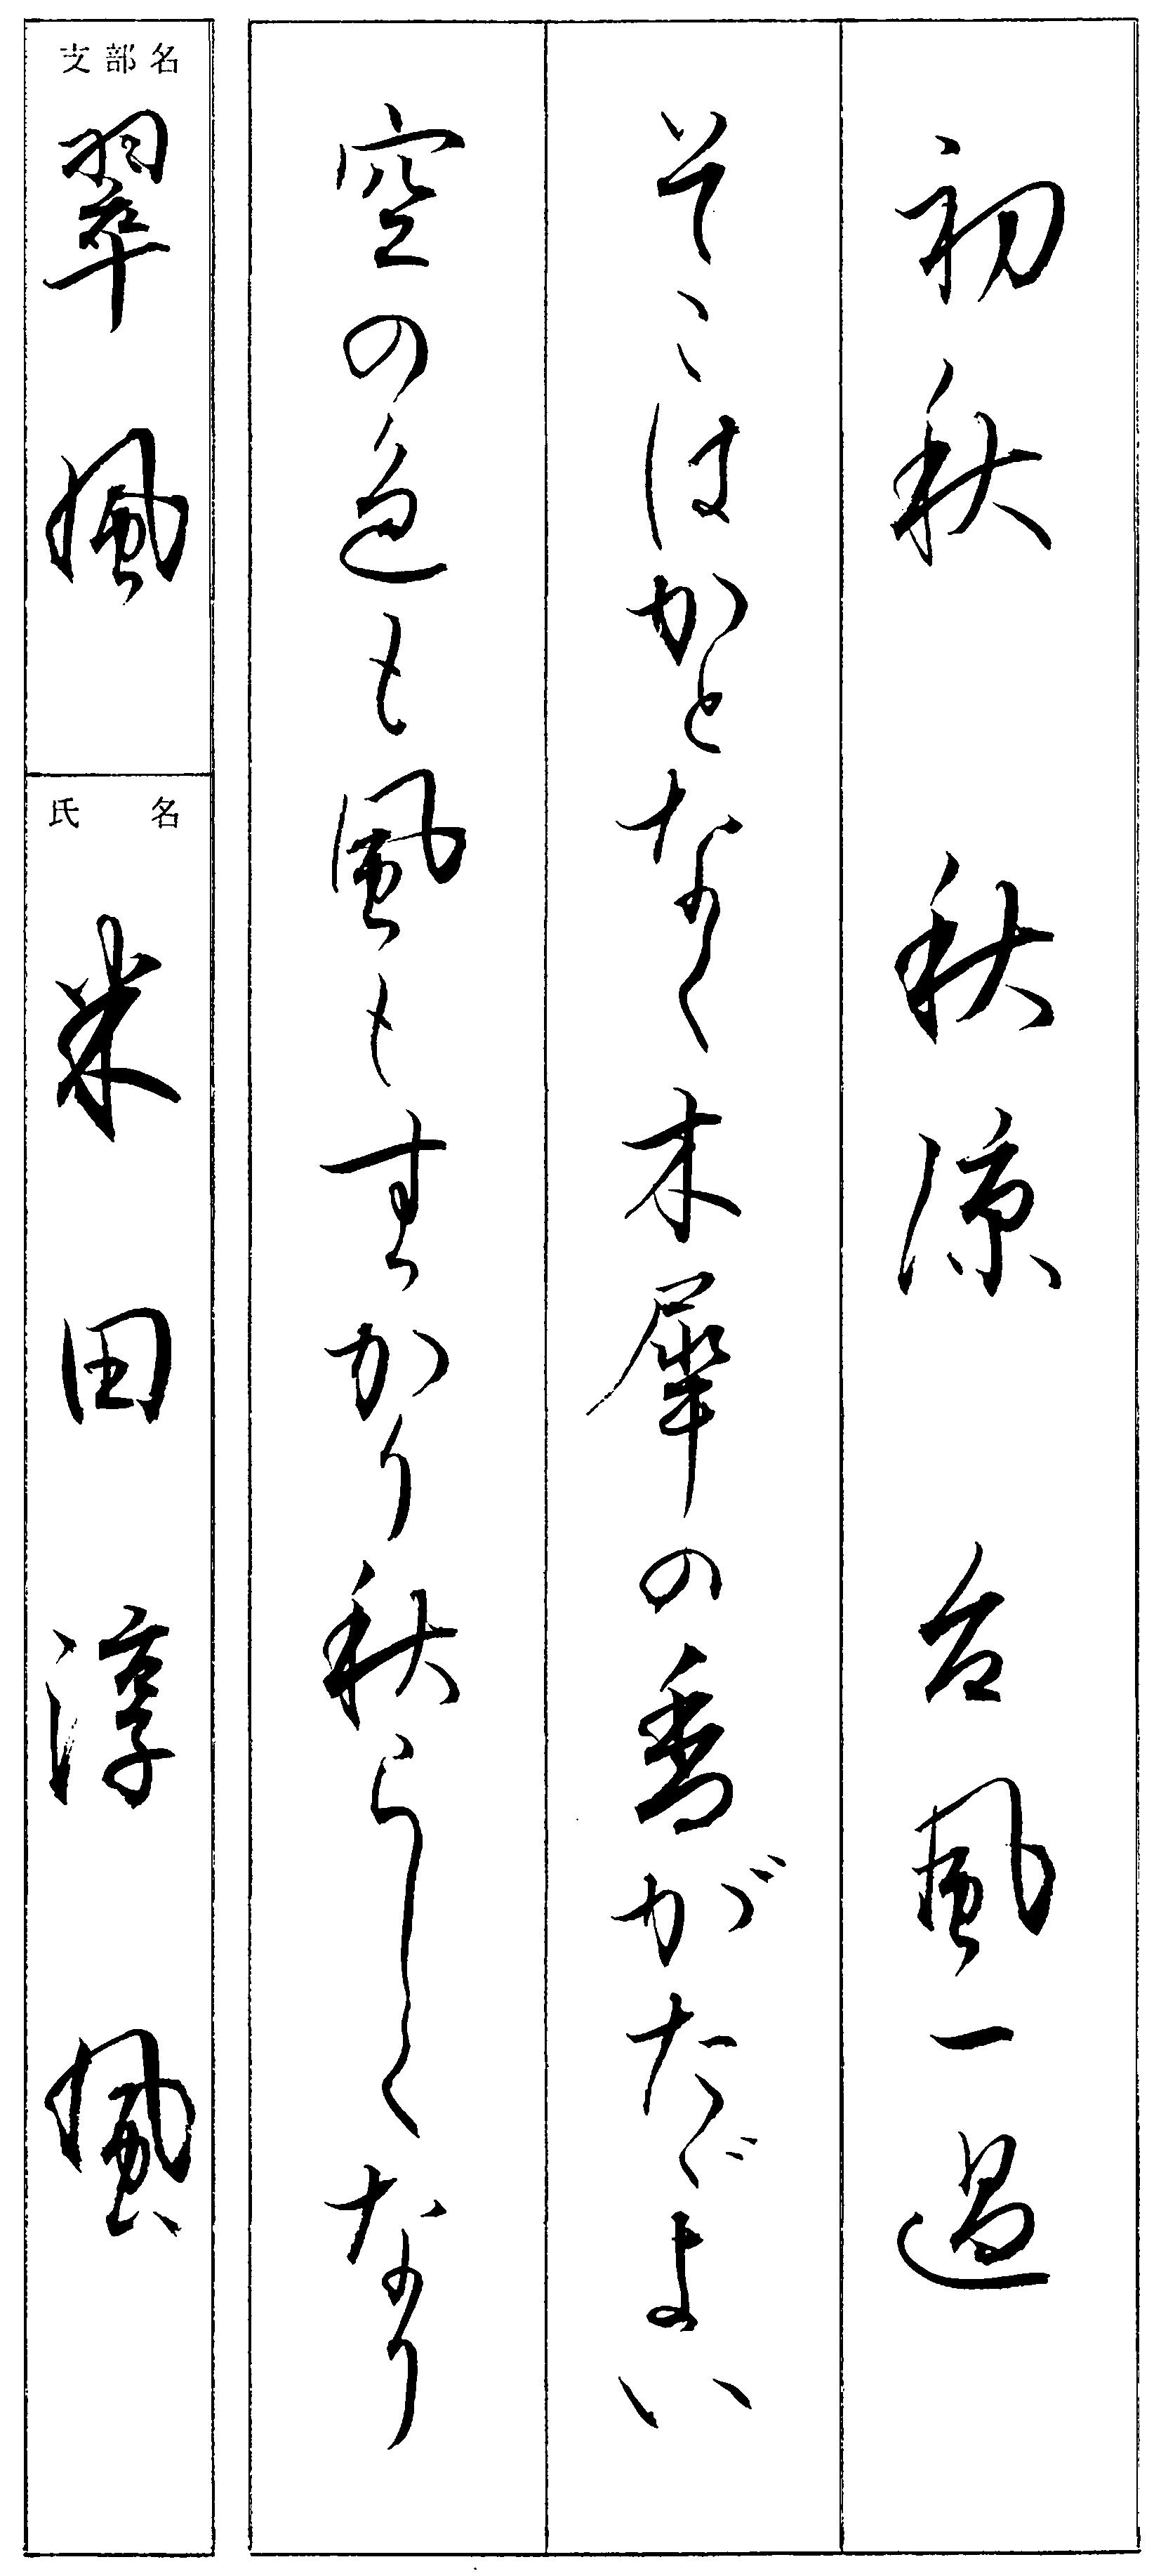 初秋 秋涼 台風一過
そこはかとなく木犀の香がたゞよい
空の色も風もすっかり秋らしくなり
支部名
翠風
氏名
米田淳風